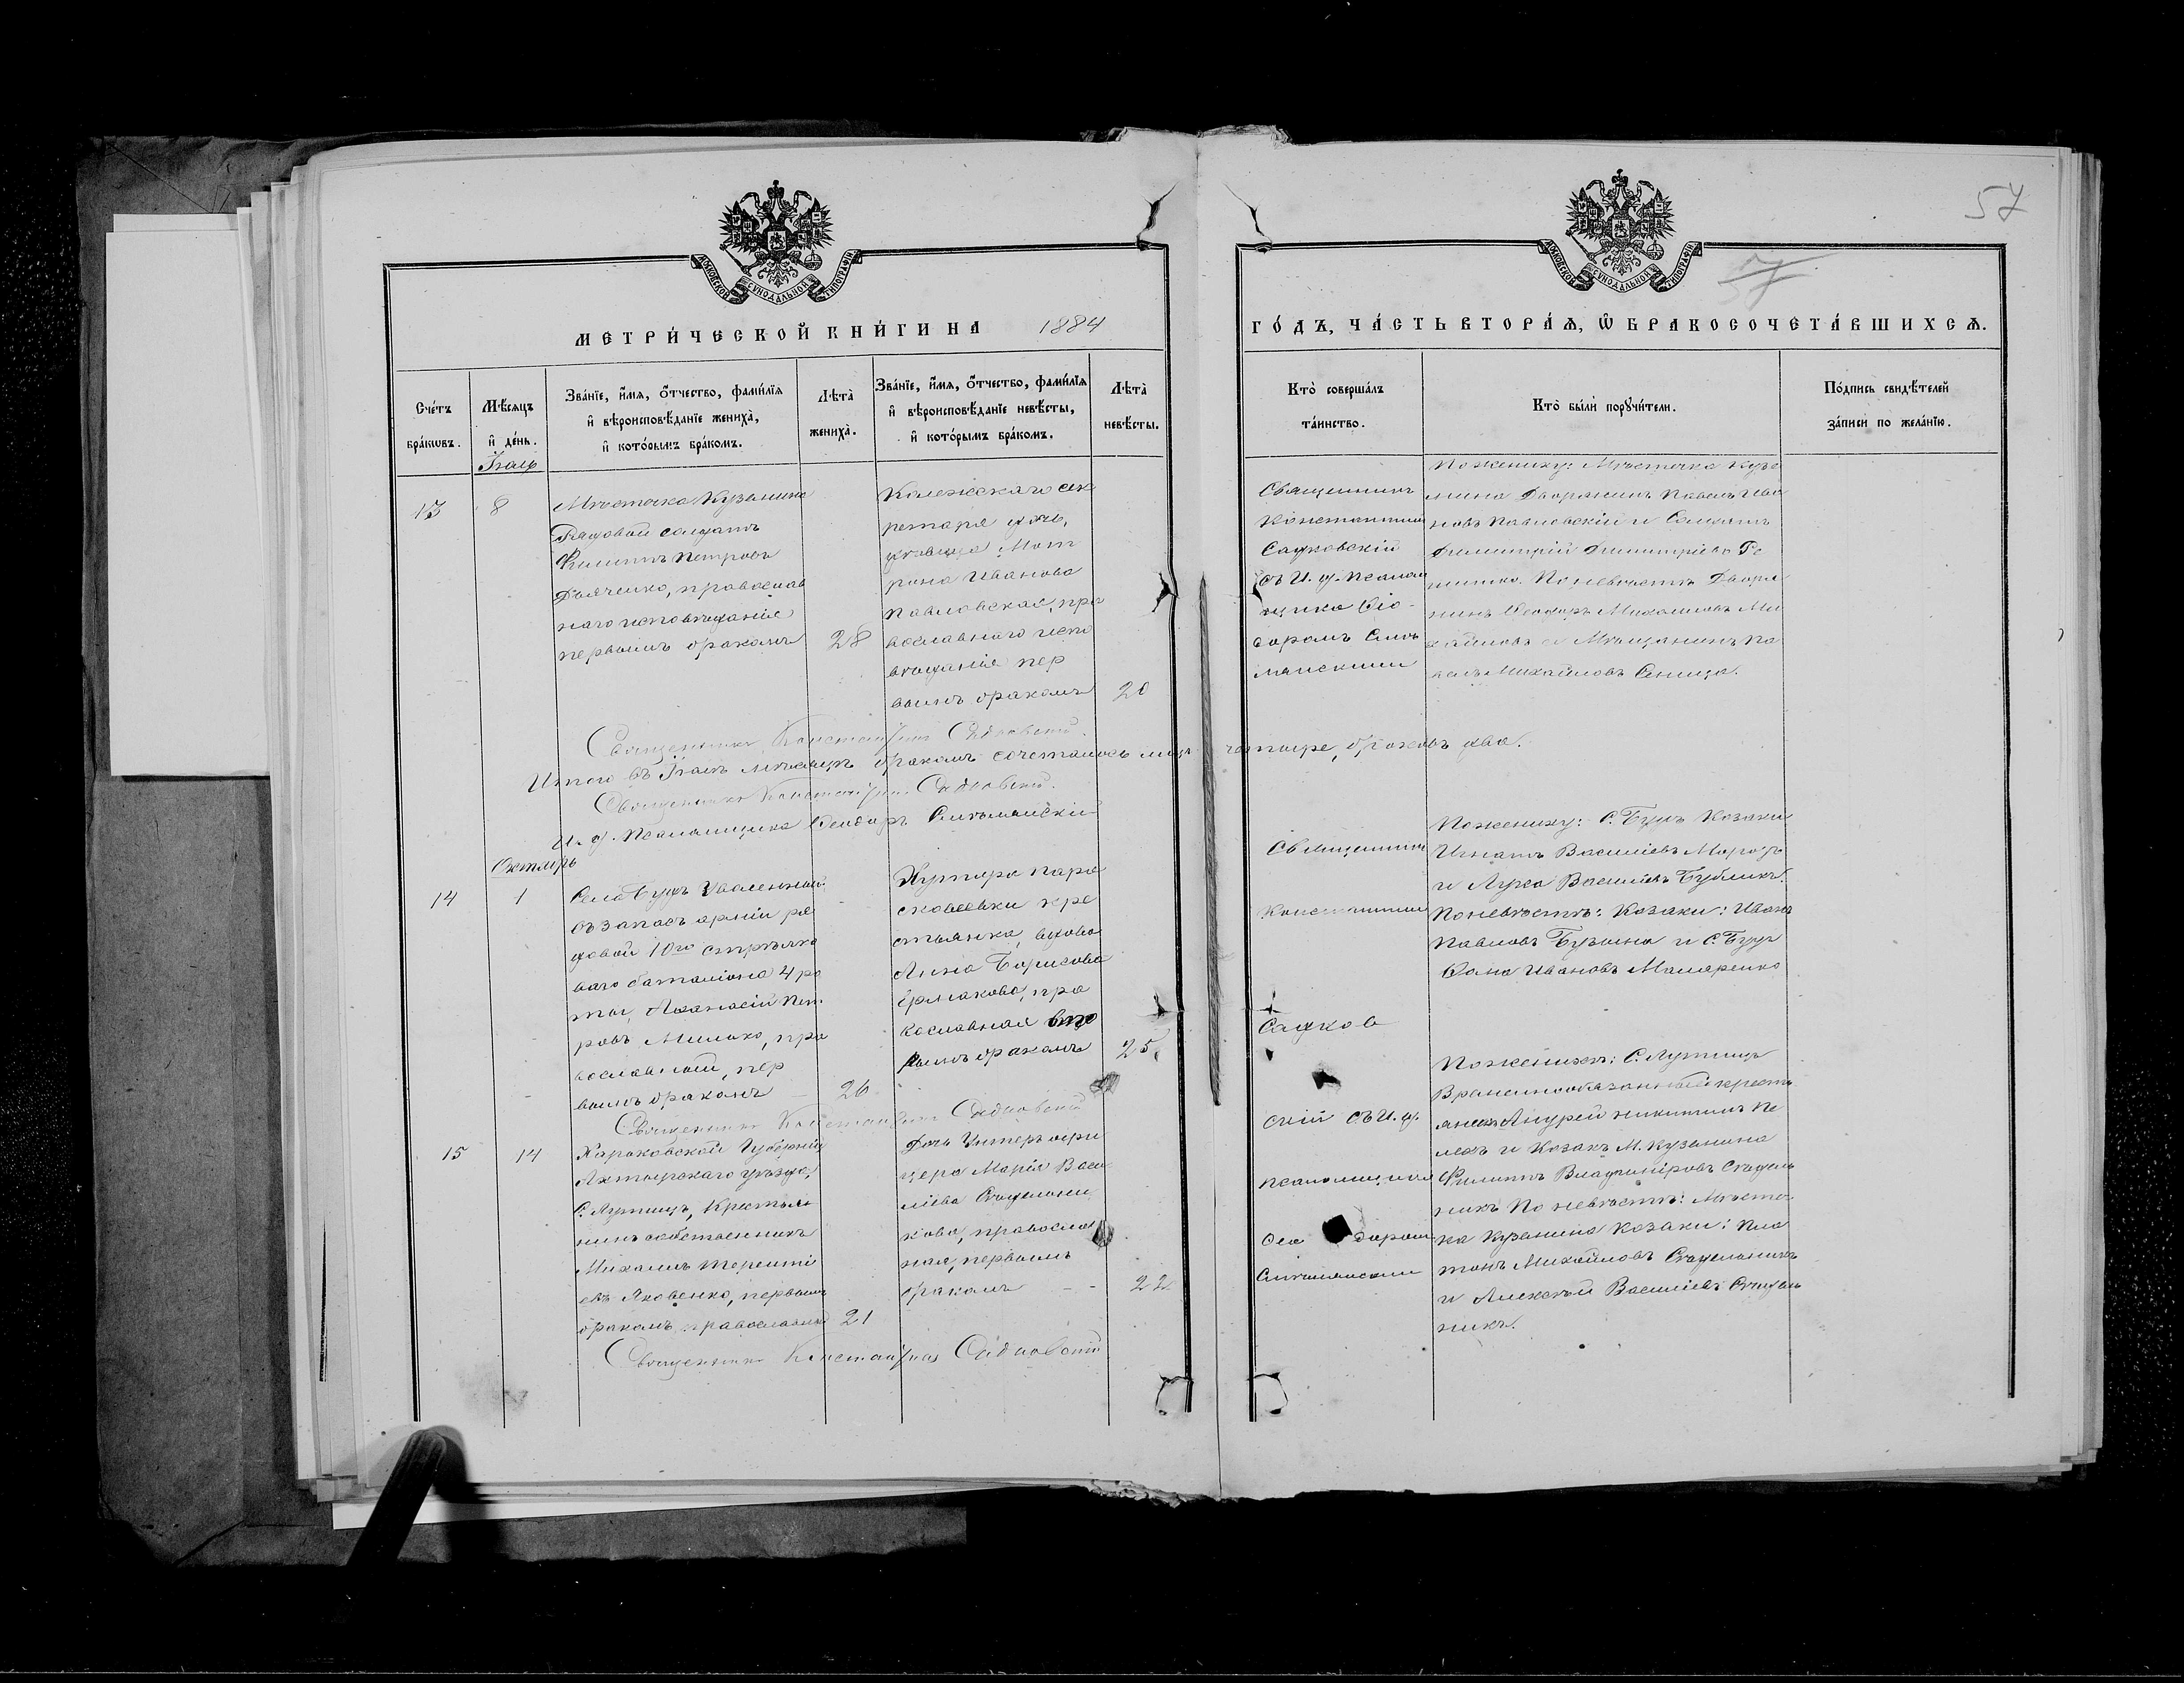 57
57
МОСКОВСКОЙ СѴНОДАЛЬНОЙ ТИПОГРАФІИ
МОСКОВСКОЙ СѴНОДАЛЬНОЙ ТИПОГРАФІИ
МЕТРИ́ЧЕСКОЙ КНИ́ГИ НА 1884
ГО́ДЪ, ЧА́СТЬ ВТОРА́Ѧ, Ѡ БРАКОСОЧЕТА́ВШИХСѦ.
Сче́тъ бра́кѡвъ.
Мѣ́сѧцъ и҆ де́нь.
Зва́нїе, и҆́мѧ, ѻ҆́тчество, фами́лїѧ
и҆ вѣроисповѣ́данїе жениха̀,
и҆ кото́рымъ бра́комъ.
Лѣ́та̀ жениха̀.
Зва́нїе, и҆́мѧ, ѻ҆́тчество, фами́лїѧ
и҆ вѣроисповѣ́данїе невѣ́сты,
и҆ кото́рымъ бра́комъ.
Лѣ́та̀ невѣ́сты.
Кто̀ соверша́лъ
та́инство.
Кто̀ бы́ли порꙋчи́тели.
По́дпись свидѣ́телей
за́писи по жела́нїю.
Іюль
13
8
Мѣстечка Куземина
Рядовой солдатъ
Филиппъ Петровъ
Дьяченко, православ
наго исповѣданія
первымъ бракомъ
28
Колежскаго сек
ретаря дочь,
дѣвица Мат
рона Иванова
Павловская, пра
вославнаго испо
вѣданія пер
вымъ бракомъ
20
Священникъ
Константинъ
Садковскій
съ И. д. псалом
щика Ѳео
доромъ Сить
манскимъ
По женику: Мѣстечка Кузе
мина Дворянинъ Павелъ Ива
новъ Павловскій и Солдатъ
Димитрій Димитріевъ Ге
По невѣстѣ Дворя
нинъ Ѳеодоръ Михаиловъ Ми
хайловъ и Мѣщанинъ Па
велъ Михайловъ Сеница.
Священникъ Константинъ Садковскій.
Итого въ Іюлѣ мѣсяцѣ бракомъ сочеталось лицъ четыре, браковъ два.
Священникъ Константинъ Садковскій.
И. д. Псаломщика Ѳеодоръ Ситьманскій
Октябрь
14
1
Села Будъ уволенный
въ запасъ арміи ря
довой 10го стрѣлко
ваго баталіона 4 ро
ты, Аѳанасій Пет
ровъ Милько, пра
вославный, пер
вымъ бракомъ
26
Хутора Пара
сковеевки кре
стьянка, вдова
Анна Борисова
Ермакова, пра
вославная вто
рымъ бракомъ
25.
Священникъ
Константинъ
Садков
скій съ И. д.
псаломщика
Ѳео доромъ
Ситьманскимъ
По женику: С. Будъ Козаки
Игнатъ Василіевъ Морозъ
и Лука Василіевъ Бубликъ.
По невѣстѣ: Козаки: Иванъ
Павловъ Бузына и С. Будъ
Сава Ивановъ Макаренко
Священникъ Константинъ Садковскій
15
14
Харьковской Губерніи
Ахтырскаго уѣзда,
С. Лутищъ, Крестья
нинъ собственникъ
Михаилъ Теренті
евъ Яковенко, первымъ
бракомъ православный
21
Дочь Унтеръ офи
цера Марія Васи
ліева Стадельни
кова, православ
ная, первымъ
бракомъ
22
По женикѣ: С. Лутищъ
Временнообязанный кресть
янинъ Андрей Никитинъ Пе
лехъ и Козакъ М. Куземина
Филиппъ Владиміровъ Стадель
никъ По невѣстѣ: Мѣстеч
ка Куземина Козаки: Пла
тонъ Михайловъ Стадельникъ
и Алексѣй Василіевъ Стадель
никъ.
Священникъ Константинъ Садковскій